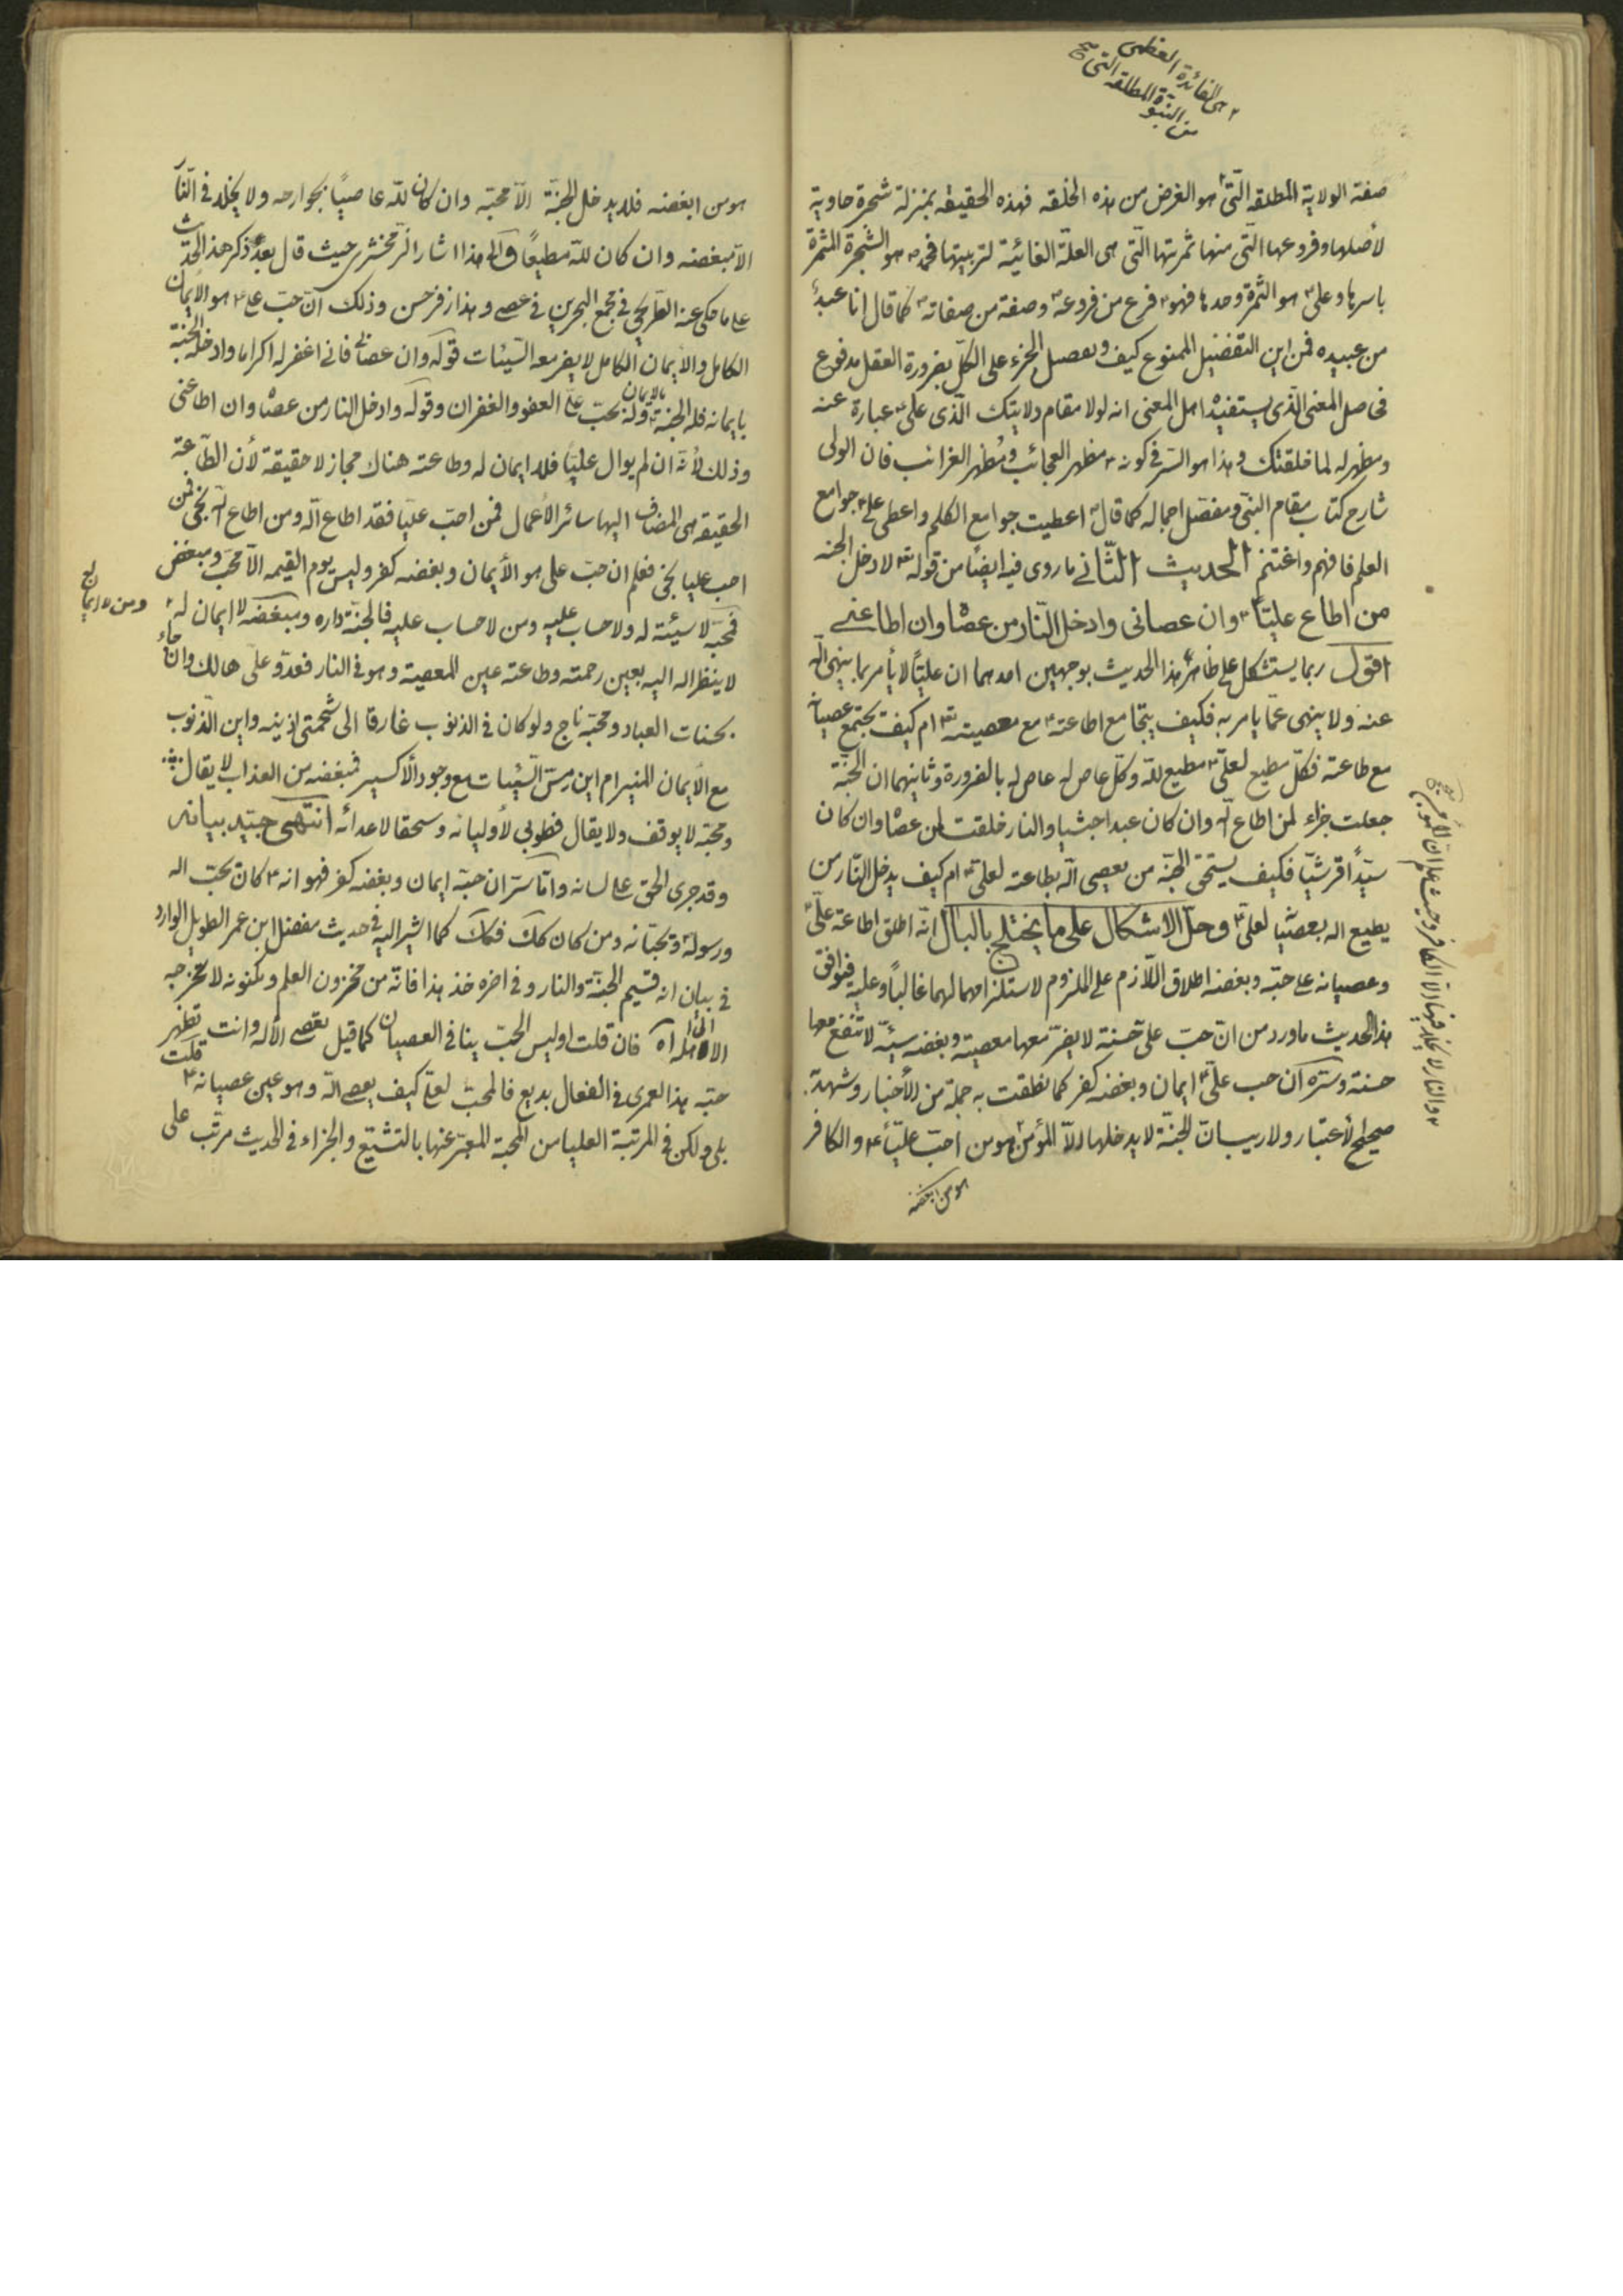 هى الفائدة العظمى
من النبوة المطلقة التى صح
صفة الولاية المطلقة الّتى هو الغرض من هذه الخلقه فهذه الحقيقة بمنزلة شجرة حاوية
لأصلها وفروعها الّتى منها ثمرتها الّتى هى العلّة الغائيّة لتربيتها فمحمد ص هو الشّجرة المثمرة
باسرها وعلى ع هو الثمرة وحدها فهو ع فرع من فروعه ص وصفة من صفاته ص كما قال انا عبد
من عبيده فمن اين التفضيل الممنوع كيف و الجزء على الكلّ بضرورة العقل مدفوع
فحاصل المعنى الّذى يستفيده اهل المعنى انه لولا مقام ولايتك الّذى علىّ ع عبارة عنه
ومظهر له لما خلقتك وهذا هو السّر فى كونه ع مظهر العجائب ومُظهر الغرائب فان الولى
شارح كتاب مقام النبّى ومفصّل اجماله كما قال ص اعطيت جوامع الكلم واعطى علىّ جوامع
العلم فافهم واغتنم الحديث الثّانى ما روى فيه ايضًا من قوله تعه لادخل الجنه
من اطاع عليّاً ع وان عصانى وادخل النّار من عصاه وان اطاعنى
اقول ربما يستشكل على ظاهر هذا الحديث بوجهين احدهما ان عليّاً لا يأمر بما ينهى اللّه
عنه ولا ينهى عمّا يامر به فكيف يتجامع اطاعته ع مع معصيته تعه ام كيف يجتمع عصيانه
مع طاعته فكلّ مطيع لعلىّ ع مطيع للّه وكلّ عاص له عاص له بالضرورة وثانيهما ان الجنّة
جعلت جزاء لمن اطاع اللّه وان كان عبدا حبشيا والنار خلقت لمن عصاه وان كان
سيّدًا قرشيّا فكيف يستحق الجنّة من يعصى اللّه بطاعته لعلى ع ام كيف يدخل النّار من
يطيع اللّه بعصيانه لعلى ع وحلّ الاشكال على ما يختلج بالبال انّه اطلق اطاعة علىّ ع
وعصيانه على حبّه وبغضه اطلاق اللّازم على الملزوم لاستلزامهما لهما غالباً وعليه فيوافق
هذا الحديث ما ورد من انّ حبّ علىّ حسنة لا يضرّ معها معصية وبغضه سيئة لا تنفع معها
حسنة وسرّه ان حب علىّ ع ايمان وبغضه كفر كما نطقت به جملة من الأخبار وشهد به
صحيح الأعتبار ولا ريب انّ الجنّة لا يدخلها الّا المؤمن وهو من احبّ عليّاً ع والكافر
والنار لا يخلد فيها الّا الكافر وحيث علم ان المؤمن صح
هو من ابغضه
هو من ابغضه فلا يدخل الجنّة الّا محبّه وان كان للّه عاصيًا بجوارحه ولا يخلد فى النّار
الّا مبغضه وان كان للّه مطيعًا والى هذا اشار الزّمخشرى حيث قال بعد ذكر هذا الحديث
على ما حكى عنه الطّريحى فى مجمع البحرين فى عصى وهذا رمز حسن وذلك انّ حبّ على ع هو الأيمان
الكامل والأيمان الكامل لا يضر معه السّيئات قوله وان عصانى فانى اغفر له اكراما وادخله الجنّة
بايمانه فله الجنة بالايمان وله بحبّ علىّ العفو والغفران وقوله وادخل النار من عصاه وان اطاعنى
وذلك لأنّه ان لم يوال عليّاً فلا ايمان له وطاعته هناك مجاز لا حقيقة لأن الطّاعة
الحقيقة هى المضاف اليها سائر الأعمال فمن احبّ عليّا فقد اطاع اللّه ومن اطاع اللّه نجى فمن
احب عليا نجى فعلم ان حبّ على هو الأيمان وبغضه كفر وليس يوم القيمه الّا محبّ ومبغض
فمحبّه لا سيئة له ولا حساب عليه ومن لا حساب عليه فالجنّة داره ومبغضه لا ايمان له
ومن لا ايمان له
لا ينظر اللّه اليه بعين رحمته وطاعته عين المعصية وهو فى النار فعدوّ علىّ هالك وان جاء
بحسنات العباد ومحبّه ناج ولو كان فى الذنوب غارقا الى شحمتى اذنيه واين الذّنوب
مع الأيمان المنير ام اين رسّ السّيئات مع وجود الأكسير فمبغضه من العذاب لا يقال
ومحبّه لا يوقف ولا يقال فطوبى لأوليائه وسحقا لاعدائه انتهى جيّد بيانه
وقد جرى الحق على لسانه وامّا سرّ ان حبّه ايمان وبغضه كفر فهو انه ع كان يحبّ اللّه
ورسوله ويحبّانه ومن كان كك فكك كما اشير اليه فى حديث مفضل ابن عمر الطويل الوارد
فى بيان انه قسيم الجنّة والنار وفى اخره خذ هذا فانّه من مخزون العلم ومكنونه لا تخرجه
الّا الى اهله اه فان قلت اوليس الحبّ ينافى العصيان كما قيل تعصى الأله وانت تظهر
حبّه هذا لعمرى فى الفعال بديع فالمحبّ لعلىّ كيف يعصى اللّه وهو عين عصيانه ع قلت
بلى ولكن فى المرتبة العليا من المحبة المعبّر عنها بالتشيّع والجزاء فى الحديث مرتّب على